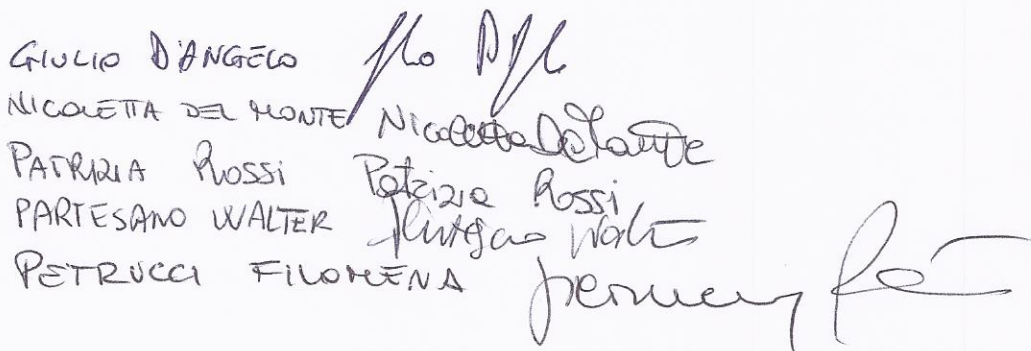 GIULIO D'ANGELO
NICOLETTA DEL MONTE Nicoletta Del Monte
PATRIZIA ROSSI Patrizia Rossi
PARTESANO WALTER Partesano Walter
PETRUCCI FILOMENA